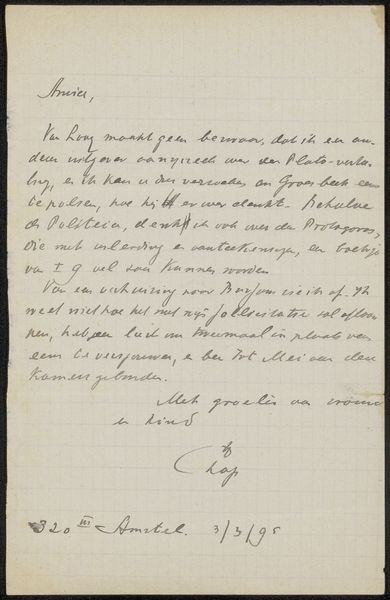 Amice,
Van Looy maakt geen bezwaar, dat ik een an-
deren uitgever aanzoek over een Plato-verta-
ling, en ik kan u dus verzoeken om Groesbeek eens
te polsen, hoe hij er over denkt. Behalve
de Politeia, denk ik ook over den Protagoras,
die met inleiding en aanteekeningen, een boekje
van f 9 vel zou kunnen worden
Van een verhuizing naar Bussum zie ik af. Ik
weet niet hoe het met mijn sollicitatie zal afloo-
pen, heb geen lust om tweemaal in plaats van
eens te verhuizen, en ben tot Mei aan den
kamers gebonden.
Met groeten van vrouw
en kind
320 III Amstel. 3/3/95